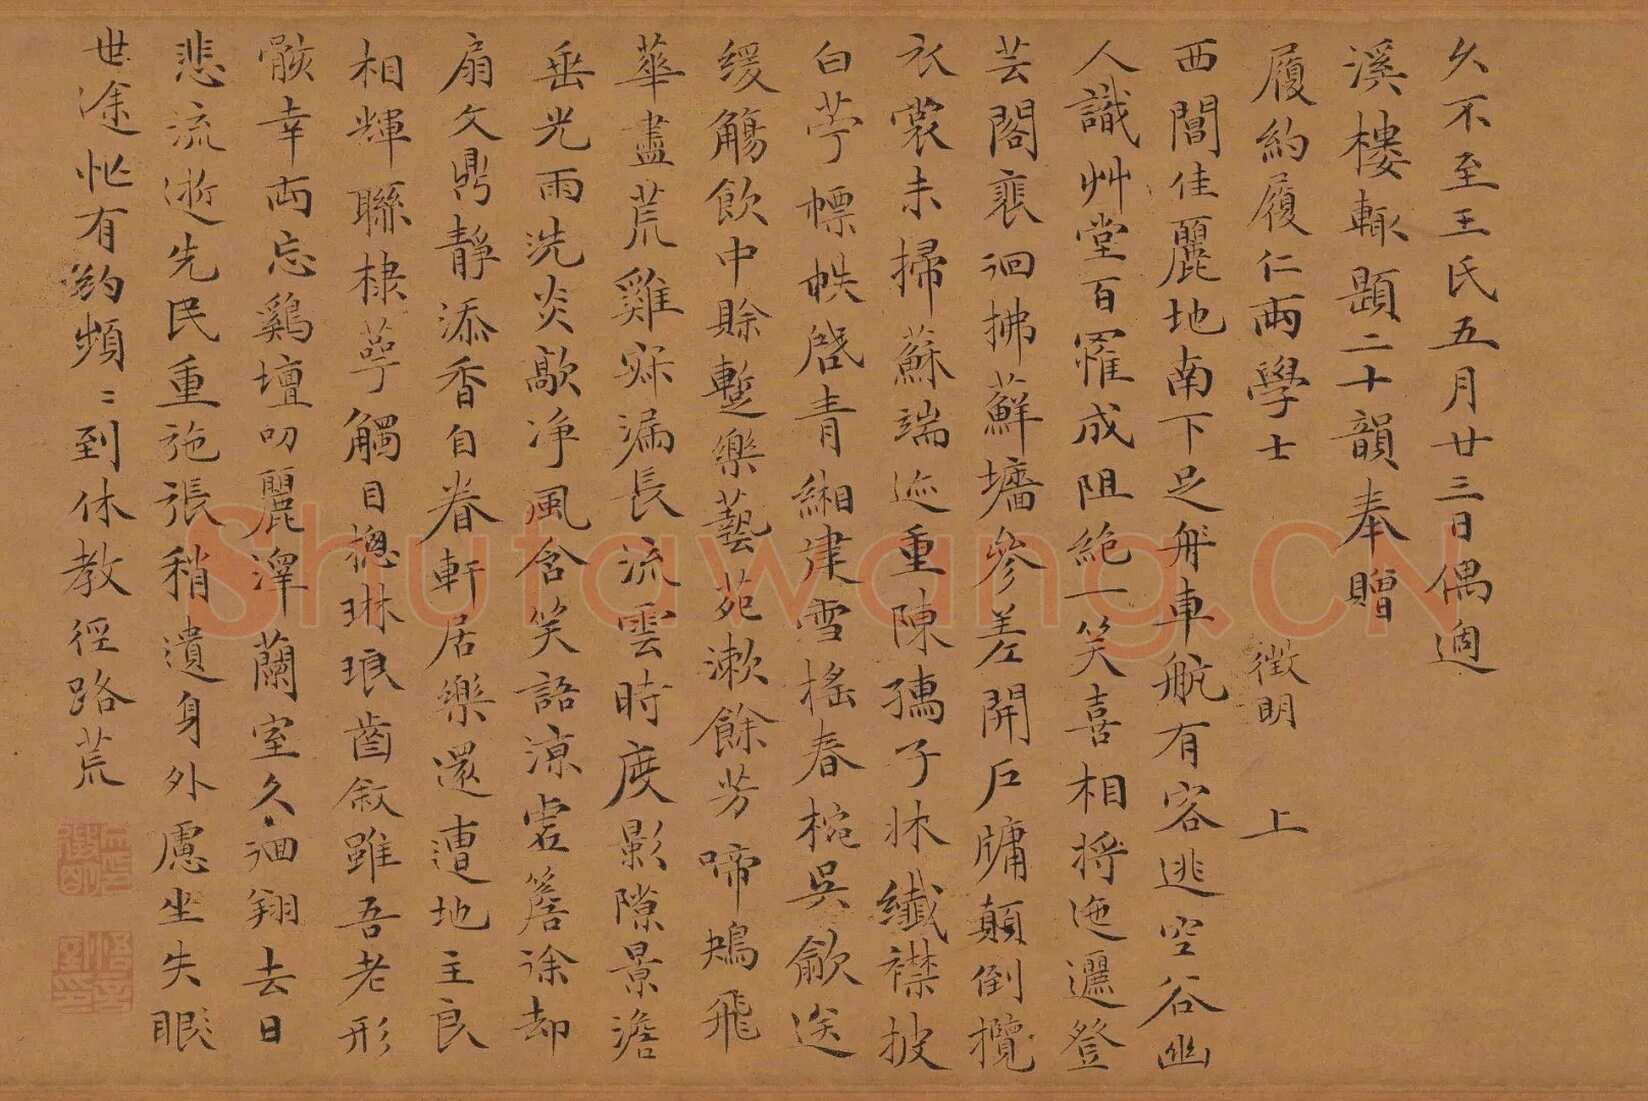 久不至王氏五月廿三日偶過
溪樓輒題二十韻奉贈
履約履仁兩學士 徵明 上
西閶佳麗地南下足舟車航有容逃空谷幽
人識艸堂百罹成阻絕一笑喜相將迤邐登
芸閣裵徊拂蘚墻參差開戶牖顛倒攬
衣裳未掃蘇端迹重陳孺子牀纖襟披
白苧幖帙啓青緗建雪搖春椀吳歈送
緩觴飲中賒蹔樂藝苑漱餘芳啼鴂飛
華盡荒雞寐漏長流雲時度影隙景澹
垂光雨洗炎歊净風含笑語涼虛簷涂却
扇文鼎靜添香自眷軒居樂還遭地主良
相輝聯棣萼觸目摠琳琅齒敘雖吾老形
骸幸兩忘鷄壇叨麗澤蘭室久徊翔去日
悲流逝先民重施張稍遺身外慮坐失眼
世途忙有約頻〻到休教徑路荒
Shufawang.CN